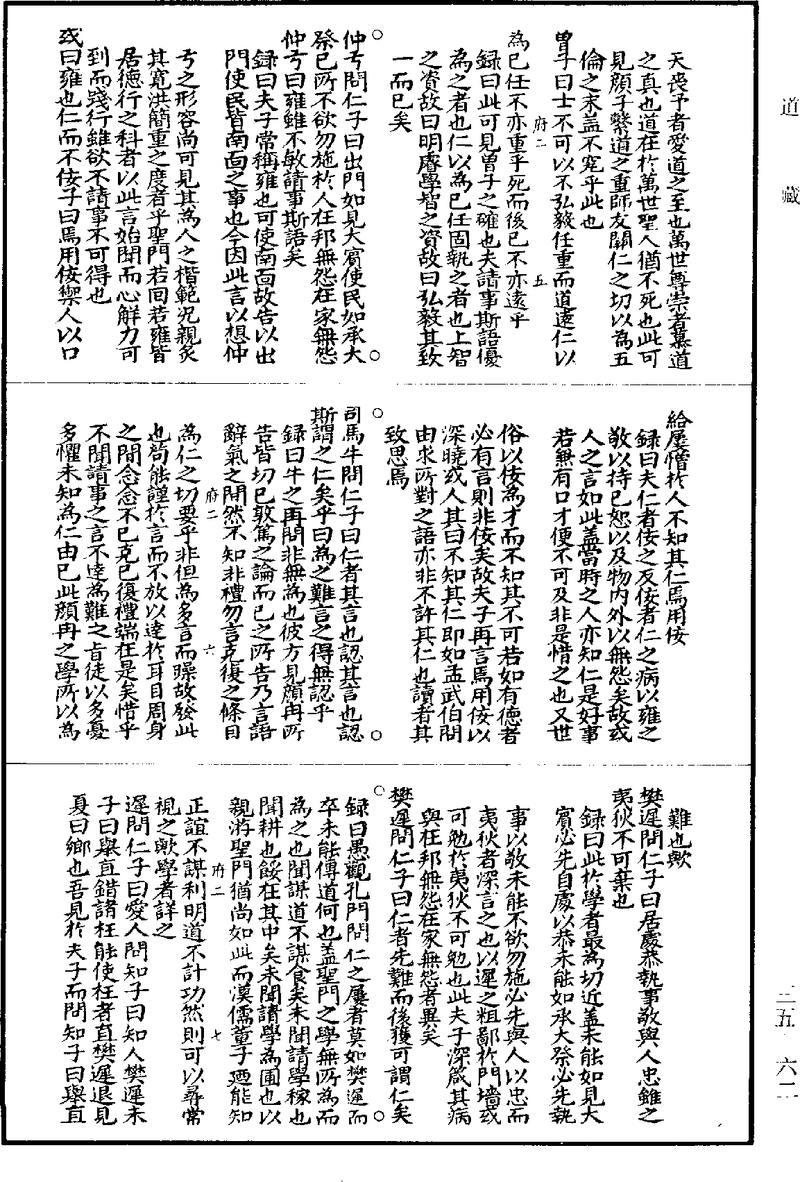 道藏
天喪予者愛道之至也萬世尊崇者慕道
之真也道在於萬世聖人猶不死也此可
見顏子繫道之重師友關仁之切以為五
倫之求盖不寃乎此也
曾子曰士不可以不弘毅任重而道遠仁以
府二
五
為已任不亦重乎死而後已不亦遠乎
録曰此可見曾子之確也夫請事斯語優
為之者也仁以為已任固執之者也上智
之資故曰明睿學智之資故曰弘毅其致
一而已矣
仲弓問仁子曰出門如見大賓使民如承大
祭已所不欲勿施於人在邦無怨在家無怨
仲弓曰雍雖不敏請事斯語矣
録曰夫子常稱雍也可使南面故告以出
門使民皆南面之事也今因此言以想仲
弓之形容尚可見其為人之楷範況親炙
其寬洪簡重之度者乎聖門若回若雍皆
居德行之科者以此言始聞而心解力可
到而踐行雖欲不請事不可得也
或曰雍也仁而不佞子曰焉用佞禦人以口
給屢憎於人不知其仁焉用佞
録曰夫仁者佞之反佞者仁之病以雍之
敬以持已恕以及物内外以無怨矣故或
人之言如此盖當時之人亦知仁是好事
若無有口才便不可及非是惜之也又世
俗以佞為才而不知其不可若如有德者
必有言則非佞矣故夫子再言焉用佞以
深曉或人其曰不知其仁即如孟武伯問
由求所對之語亦非不許其仁也讀者其
致思焉
司馬牛問仁子曰仁者其言也認其言也認
斯謂之仁矣乎曰為之難言之得無認乎
録曰牛之再問非無為也彼方見顏冉所
告皆切已敦篤之論而已之所告乃言語
辭氣之間然不知非禮勿言克復之條目
府二
六
為仁之切要乎非但為多言而躁故發此
也苟能謹於言而不放以達於耳目周身
之間念念不已克已復禮端在是矣惜乎
不聞請事之言不達為難之旨徒以多憂
多懼未知為仁由已此顏冉之學所以為
難也歟
樊遲問仁子曰居處恭執事敬與人忠雖之
夷狄不可棄也
録曰此於學者最為切近盖未能如見大
賓必先自處以恭未能如承大祭必先執
事以敬未能不欲勿施必先與人以忠而
夷狄者深言之也以遲之粗鄙於門墻或
可勉於夷狄不可勉也此夫子深箴其病
與在邦無怨在家無怨者異矣
樊遲問仁子曰仁者先難而後獲可謂仁矣
録曰愚觀孔門問仁之屢者莫如樊遲而
卒未能傳道何也盖聖門之學無所為而
為之也聞謀道不謀食矣未聞請學稼也
聞耕也餒在其中矣未聞請學為圃也以
親游聖門猶尚如此而漢儒董子廼能知
府二
七
正誼不謀利明道不計功然則可以尋常
視之歟學者詳之
遲問仁子曰愛人問知子曰知人樊遲未
子曰舉直錯諸枉能使枉者直樊遲退見
夏曰鄉也吾見於夫子而問知子曰舉直
三五
六二